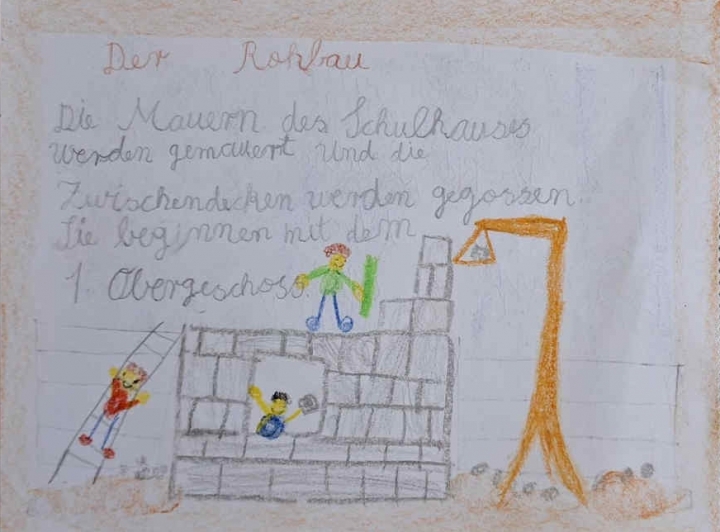 Der Rohbau
Die Mauern des Schulhauses
werden gemauert und die
Zwischendecken werden gegossen.
Sie beginnen mit dem
1. Obergeschoss.